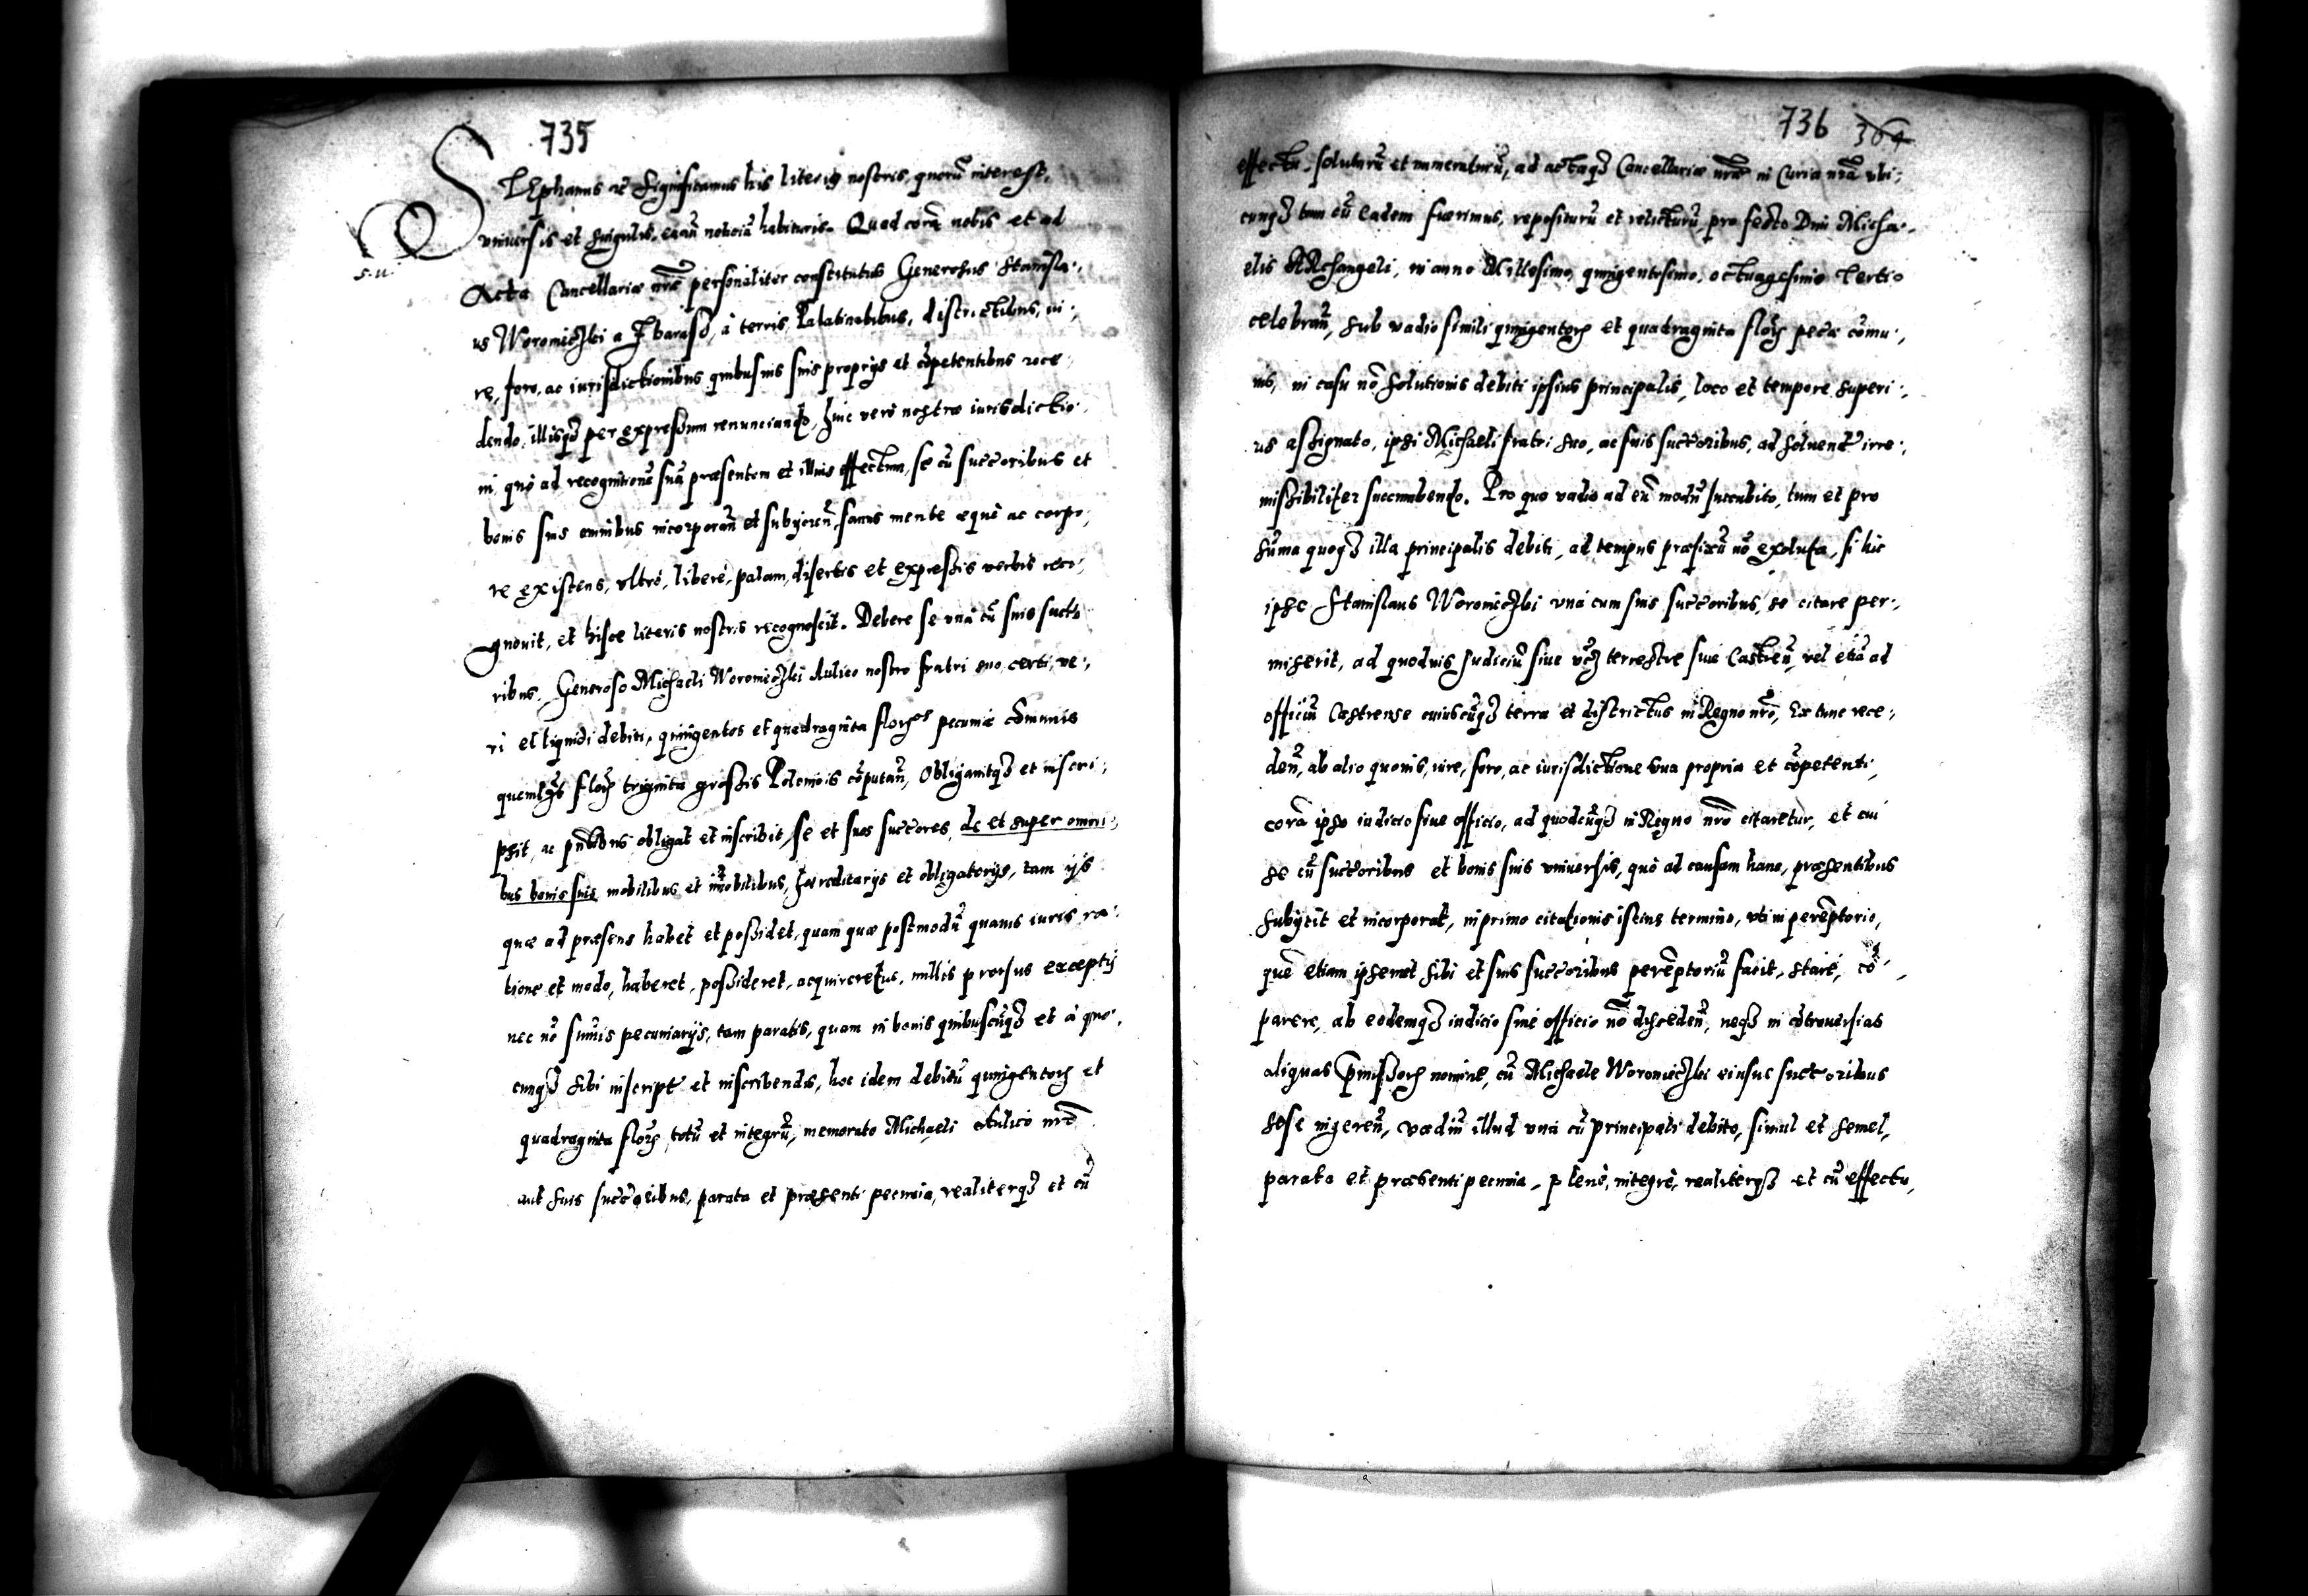 735
STEphanus etc Significamus his literis nostris, quorũ interest,
vniuersis et singulis, earũ noticiã habituris. Quod corã nobis et ad
S. W.
Acta Cancellariæ nr̃æ personaliter constitutus Generosus Stanisla:,
us Woroniczki a Zbaraſz, à terris, Palatinatibus, districtibus, iu:,
re, foro, ac iurisdictionibus quibusuis suis proprijs et cõpetentibus rece:,
dendo, illisqȝ per expressum renunciando, huic verò nostræ iurisdictio:,
ni, quò ad recognitionẽ suã præsentem et illius effectum, se cũ succ̃oribus et
bonis suis omnibus incorporañ et subijcień, sanus mente æquè ac corpo:,
re existens, vltrò, liberè, palam, disertis et expressis verbis reco:,
gnouit, et hisce literis nostris recognoscit. Debere se vnà cũ suis succ̃o
ribus, Generoso Michaeli Woroniczki Aulico nostro fratri suo certi, ve:,
ri et liquidi debiti, quingentos et quadraginta floȓos pecuniæ cõmunis
quemlȝt floȓ triginta grossis Polonicis cõputań, Obligauitqȝ et inscri:,
psit, ac pñtibus obligat et inscribit, se et suos succ̃ores, de et super omni:,
bus bonis suis mobilibus et im̃obilibus, hæreditarijs et obligatorijs, tam ijs
quæ ad præsens habet et possidet, quam quæ postmodũ quauis iuris ra:,
tione et modo, haberet, possideret, acquireretus, nullis prorsus exceptis
nec nõ sum̃is pecuniarijs, tam paratis, quam in bonis quibuscũqȝ et à quo:,
cunqȝ sibi inscript et inscribendis, hoc idem debitũ quingentorȝ et
quadraginta floȓ, totũ et integrũ, memorato Michaeli Aulico nrõ
aut suis succ̃oribus, parata et præsenti pecunia, realiterqȝ et cũ
736 364
effectu, soluturũ et numeraturũ, ad actaqȝ Cancellariæ nr̃æ in Curia nrã vbi:,
cunqȝ tum cũ eadem fuerimus, repositurũ et relicturũ, pro festo Diui Micha:,
elis ARchangeli, in anno Millesimo, quingentesimo, octuagesimo tertio
celebrań, sub vadio simili quingentorȝ et quadraginta floȓ pecæ cõmu:,
nis, in casu nõ solutionis debiti ipsius principalis, loco et tempore superi:,
us assignato, ipsi Michaeli fratri suo, ac suis succ̃oribus, ad soluend irre:,
missibiliter succumbendo. Pro quo vadio ad eũ modũ succubito, tum et pro
sũma quoqȝ illa principalis debiti, ad tempus præfixũ nõ exoluta, si hic
ipse Stanislaus Woroniczki vnà cum suis succ̃oribus, se citare per:,
miserit, ad quoduis Iudiciũ siue vcȝ terrestre siue Castreń, vel etiã ad
officiũ Castrense cuiuscũqȝ terræ et districtus in Regno nrõ, Ex tunc rece:,
deń, ab alio quouis, iure, foro, ac iurisdictione sua propria et cõpetenti,
corã ipso iudicio siue officio, ad quodcũqȝ in Regno nrõ citaretur, et cui
se cũ succ̃oribus et bonis suis vniuersis, quò ad causam hanc, præsentibus
subijcit et incorporat, in primo citationis istius termino, vti in perẽptorio,
quẽ etiam ipsemet sibi et suis succ̃oribus perẽptoriũ facit, stare, cõ:,
parere, ab eodemqȝ iudicio siue officio nõ discedeń, neqȝ in cõtrouersias
aliquas p̃missorȝ nomine, cũ Michaele Woroniczki eiusue succ̃oribus
sese ingereń, vadiũ illud vnà cũ principali debito, simul et semel,
parata et præsenti pecunia, plenè, integrè, realiterqȝ et cũ effectu,